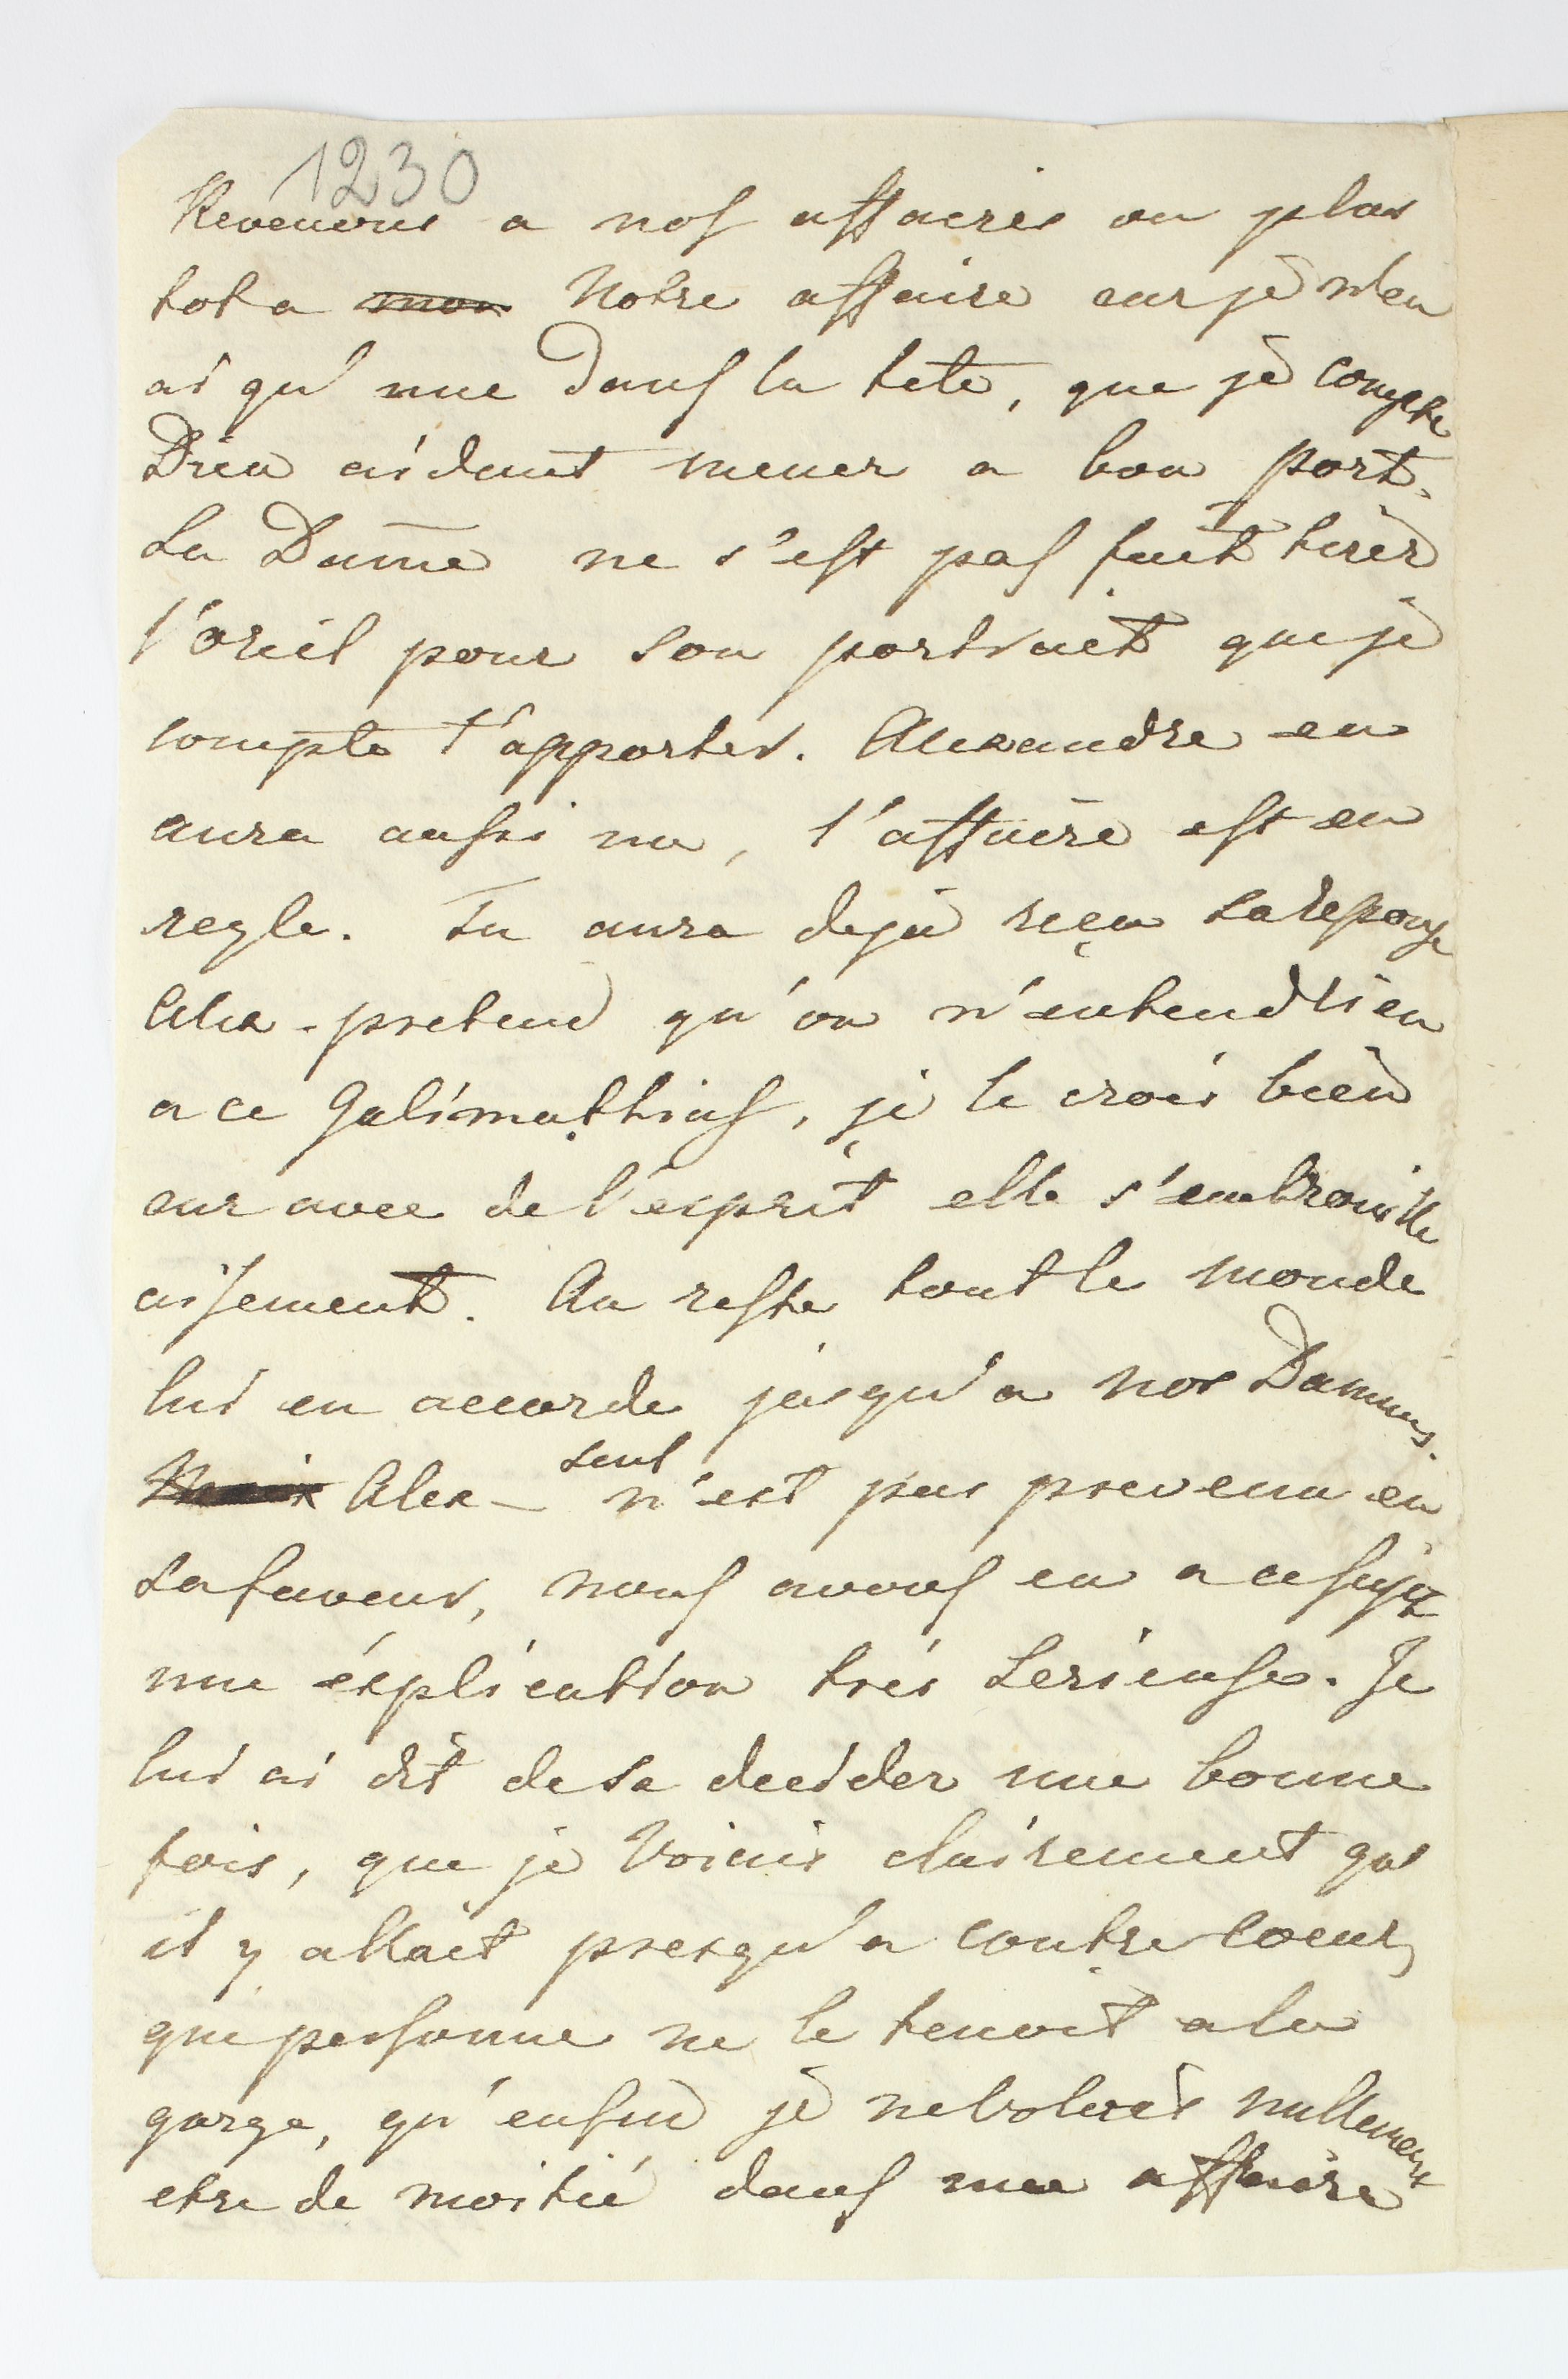 1230
Revenons a nos affaires ou plus
tot a mon Notre affaire car je n'en
ai qu'une dans la tete, que je compte
Dieu aidant mener a bon port.
La Dame ne s'est pas fait tirer
l'oreil pour son portrait que je
compte t'apporter. Alexandre en
aura aussi un, l'affaire est en
regle. Tu aura deja reçu sa reponse
Alex - pretend qu'on n'entend rien
a ce Galimathias, je le crois bien
car avec de l'esprit elle s'embrouille
aisement. Au reste tout le monde
lui en accorde jusqu'a nos Dammes.
Mais Alex - seul n'est pas prevenu en
sa faveur, nous avons eu a ce sujet
une éxplication très serieuse. Je
lui ai dit de se decider une bonne
fois, que je voiais clairement qu'
il y allait presqu'a contre coeur,
que personne ne le tenoit a la
gorge, qu'enfin je ne volois nullement
etre de moitié dans une affaire